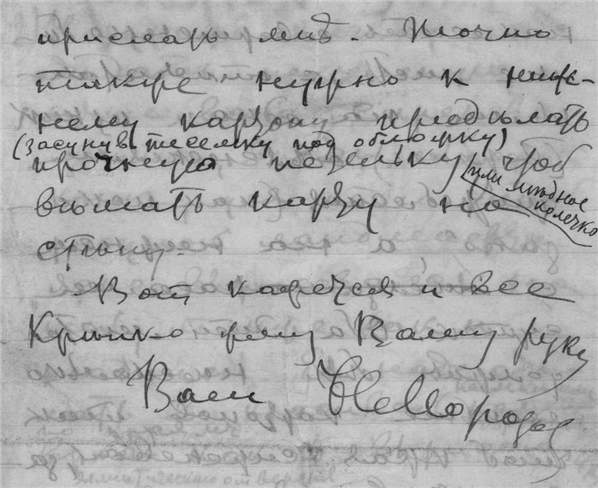 прислать мнѣ. Точно
также нужно к ниж-
нему картону придѣлать
(засунув тесемку под обложку)
прочную петельку, чтоб
(или мѣдное
колечко
вѣшать карту на
стѣну.
Вот кажется и все
Крѣпко жму Вашу руку
Ваш НМорозов